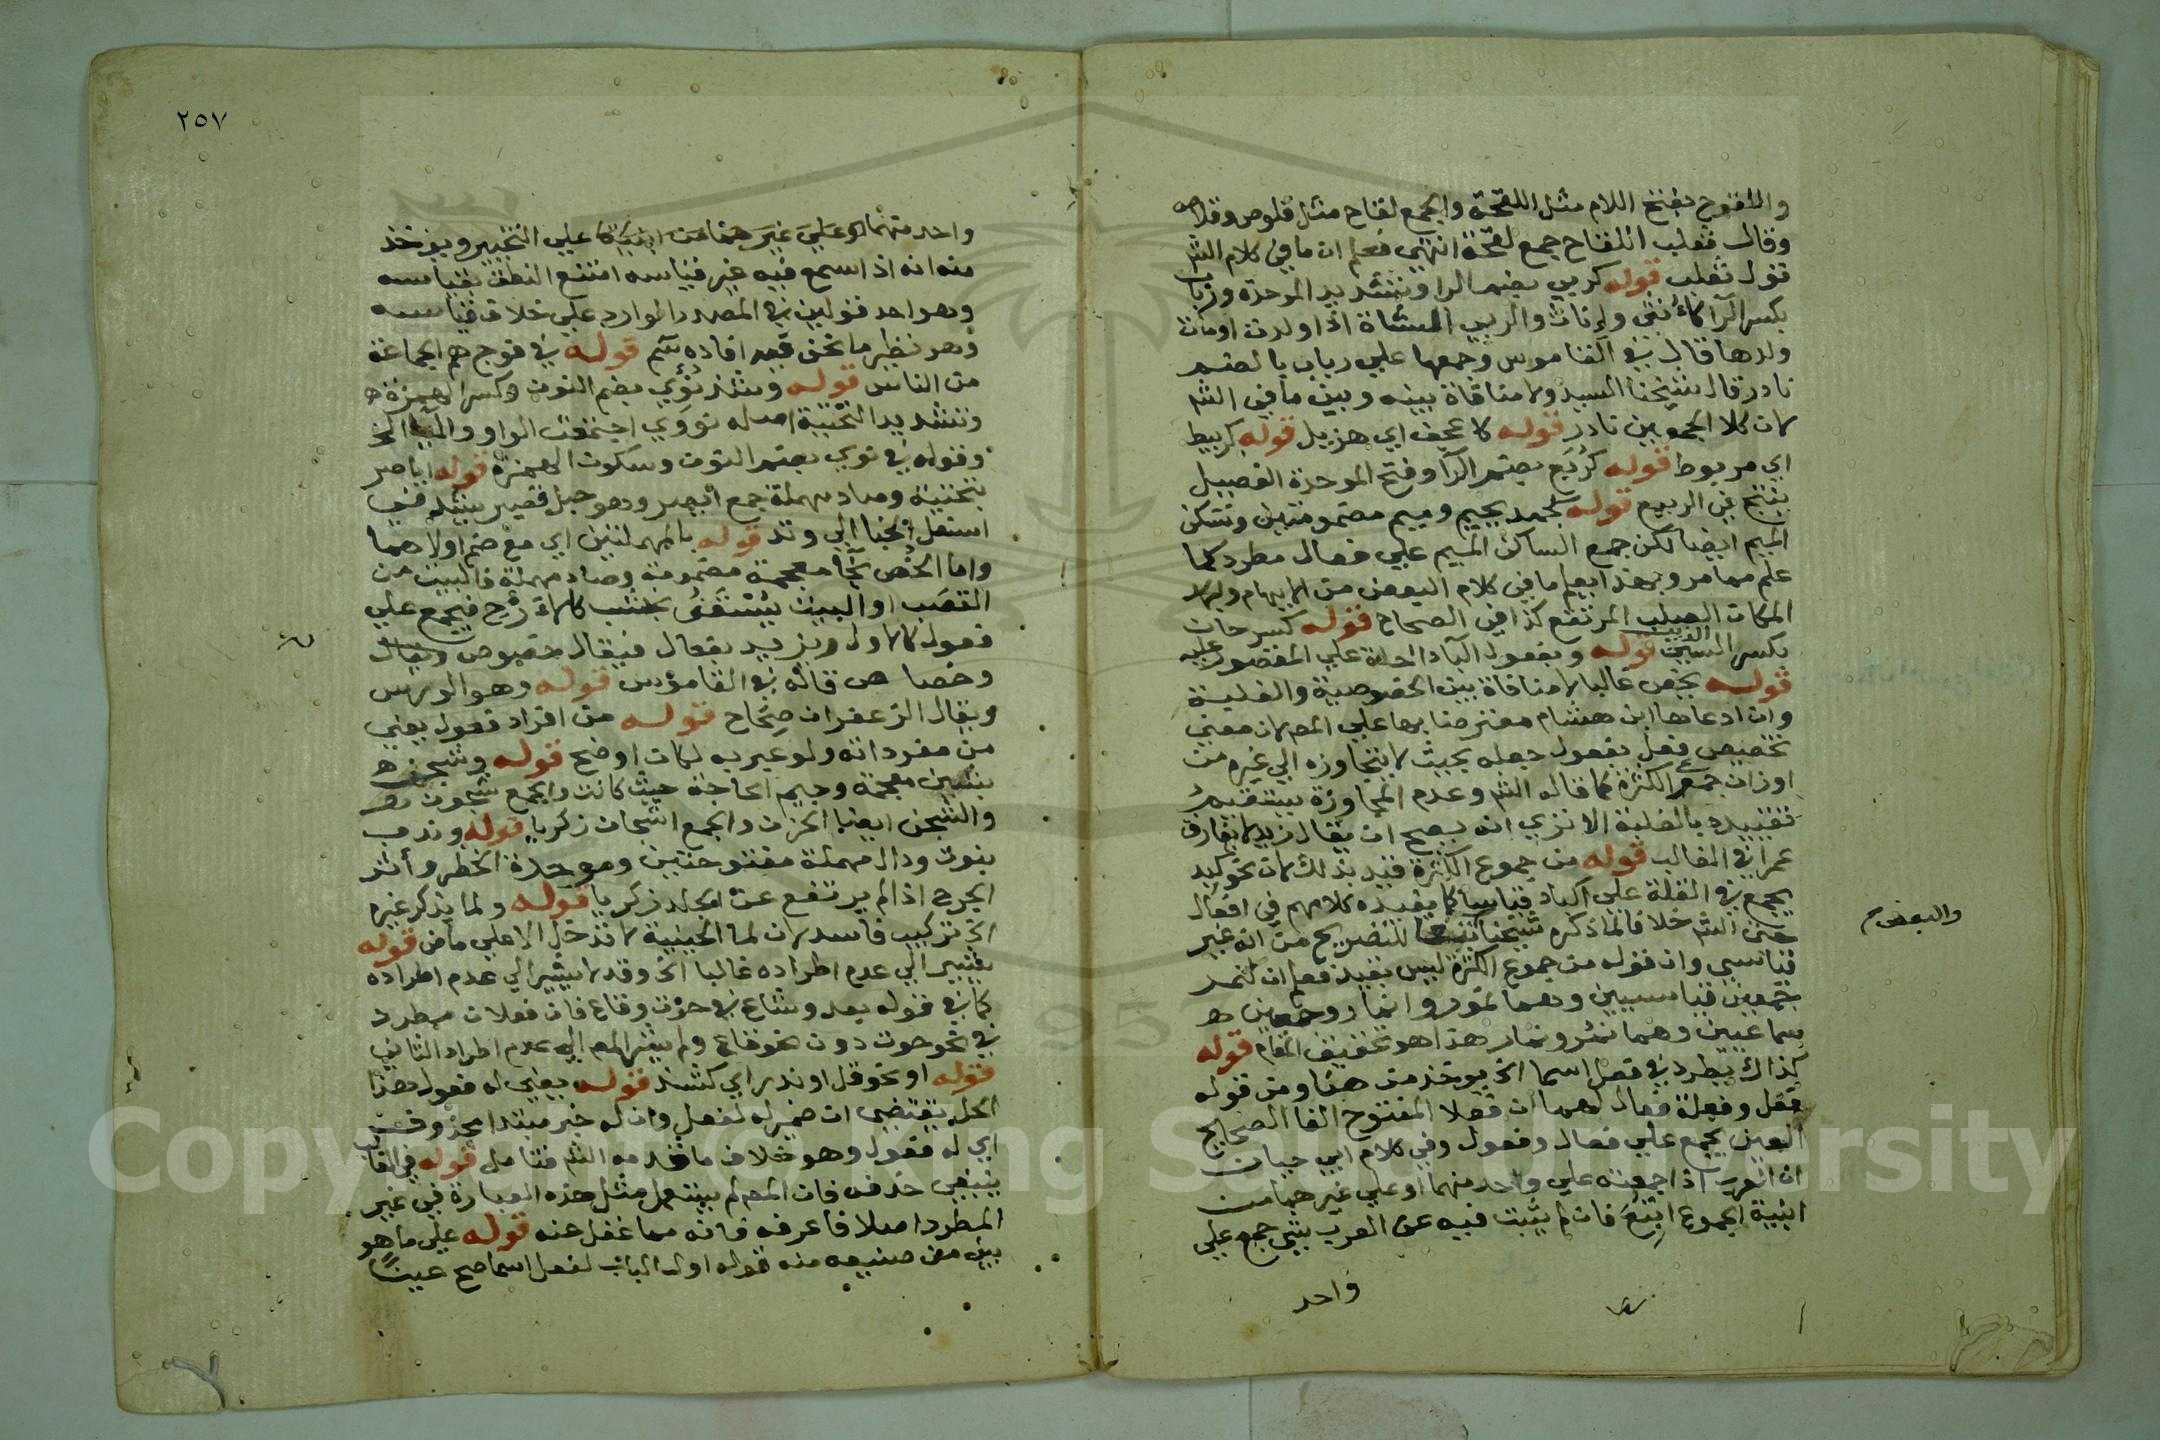 واللقوح بفتح اللام مثل اللقحة والجمع لقاح مثل قلوص وقلاص
وقال ثعلب اللقاح جمع لقحة انتهى فعلم ان ما في كلام الش
قول ثعلب قوله كربي بضم الرا وتشديد الموحدة ورباب
بكسر الرا كانثى واناث والربى الشاة اذا ولدت او مات
ولدها قال في القاموس وجمعها على رباب بالضم
نادر قال شيخنا السيد ولا منافاة بينه وبين ما في الش
لان كلا الجمعين نادر قوله كاعجف اي هزيل قوله كربيط
اي مربوط قوله كربع بضم الرا وفتح الموحدة الفصيل
ينتج في الربيع قوله كجمد بجيم وميم مضمومتين وتسكن
الميم ايضا لكن جمع الساكن الميم على فعال مطرد كما
علم مما مر وبهذا يعلم ما في كلام البعض من الايهام
المكان الصلب المرتفع كذا في الصحاح قوله كسرحان
بكسر السين الذيب قوله وبفعول الباء داخلة على المقصور عليه
قوله يخص غالبا لا منافاة بين الخصوصية والغلبة
وان ادعاها ابن هشام معترضا بها على المص لان معنى
تخصيص فعل بفعول جعله بحيث لا يتجاوزه الى غيره من
اوزان جمع الكثرة كما قاله الش وعدم المجاوزة يستقيم
تقييده بالغلبة الا ترى انه يصح ان يقال زيد لا يفارق
عمرا في الغالب قوله من جموع الكثرة قيد بذلك لان نحو كبد
يجمع في القلة على اكباد قياسا كما يفيده كلامهم في افعال
حتى الش خلافا لما ذكره شيخنا للتصريح من انه غير
قياسي وان قوله من جموع الكثرة ليس بقيد فعلم ان لنمر
جمعين قياسيين وهما نمور وانمار وجمعين
سماعيين وهما نمر ونمار هذا هو تحقيق المقام قوله
كذاك يطرد في فعل اسما الخ يوخذ من هنا ومن قوله
فعل وفعلة فعال لهما ان فعلا المفتوح الفا الصحيح
العين يجمع على فعال وفعول وفي كلام ابي حيان
ان العرب اذا جمعته على واحد منهما او على غيرهما من
ابنية الجموع اتبع فان لم يثبت فيه عن العرب شي جمع على
واحد
والبعض
٢٥٧
واحد منهما على التخيير ويوخذ
منه انه اذا سمع فيه غير قياسه امتنع النطق بقياسه
وهو احد قولين في المصدر الوارد على خلاف قياسه
وهو نظير ما نحن فيه افاده سم قوله في فوج هم الجماعة
من الناس قوله وشذ نؤي بضم النون وكسر الهمزة
وتشديد التحتية اصله نؤوي اجتمعت الواو والياء الخ
وقوله في نؤي بضم النون وسكون الهمزة قوله اياصر
بتحتية وصاد مهملة جمع ايصر وهو حبل قصير يشد في
اسفل الخبا الى وتد قوله بالمهملتين اي مع ضم اولاهما
واما الخص بخا معجمة مضمومة وصاد مهملة فالبيت من
القصب او البيت يسقف بخشب كالازج فيجمع على
فعول كالاول ويزيد بفعال فيقال خصوص
وخصاص قاله في القاموس قوله وهو الورس
ويقال الزعفران صحاح قوله من افراد فعول يعني
من مفرداته ولو عبر به لكان اوضح قوله وشجن
بشين معجمة وجيم الحاجة حيث كانت والجمع شجون
والشجن ايضا الحزن والجمع اشجان زكريا قوله وندب
بنون ودال مهملة مفتوحتين وموحدة الخطر واثر
الجرح اذا لم يرتفع عن الجلد زكريا قوله ولما يذكر غيره
الخ تركيب فاسد لان لما الحينية لا تدخل الا على ماض قوله
يشير الى عدم اطراده غالبا الخ وقد لا يشير الى عدم اطراده
كما في قوله بعد وشاع في حوت وقاع فان فعلان مطرد
في نحو حوت دون نحو قاع ولم يشر المص الى عدم اطراد الثاني
قوله او نحو قل او ندر اي كشذ قوله يعني له فعول هذا
الحل يقتضي ان ضمير له لفعل وان له خبر مبتدا محذوف
اي له فعول وهو خلاف ما قدمه الش فتامل قوله في الغالب
ينبغي حذفه فان المص لم يستعمل مثل هذه العبارة في غير
المطرد اصلا فاعرفه فانه مما غفل عنه قوله على ما هو
بين من صنيعه منه قوله اول الباب لفعل اسما صح عينا
Copyright © King Saud University